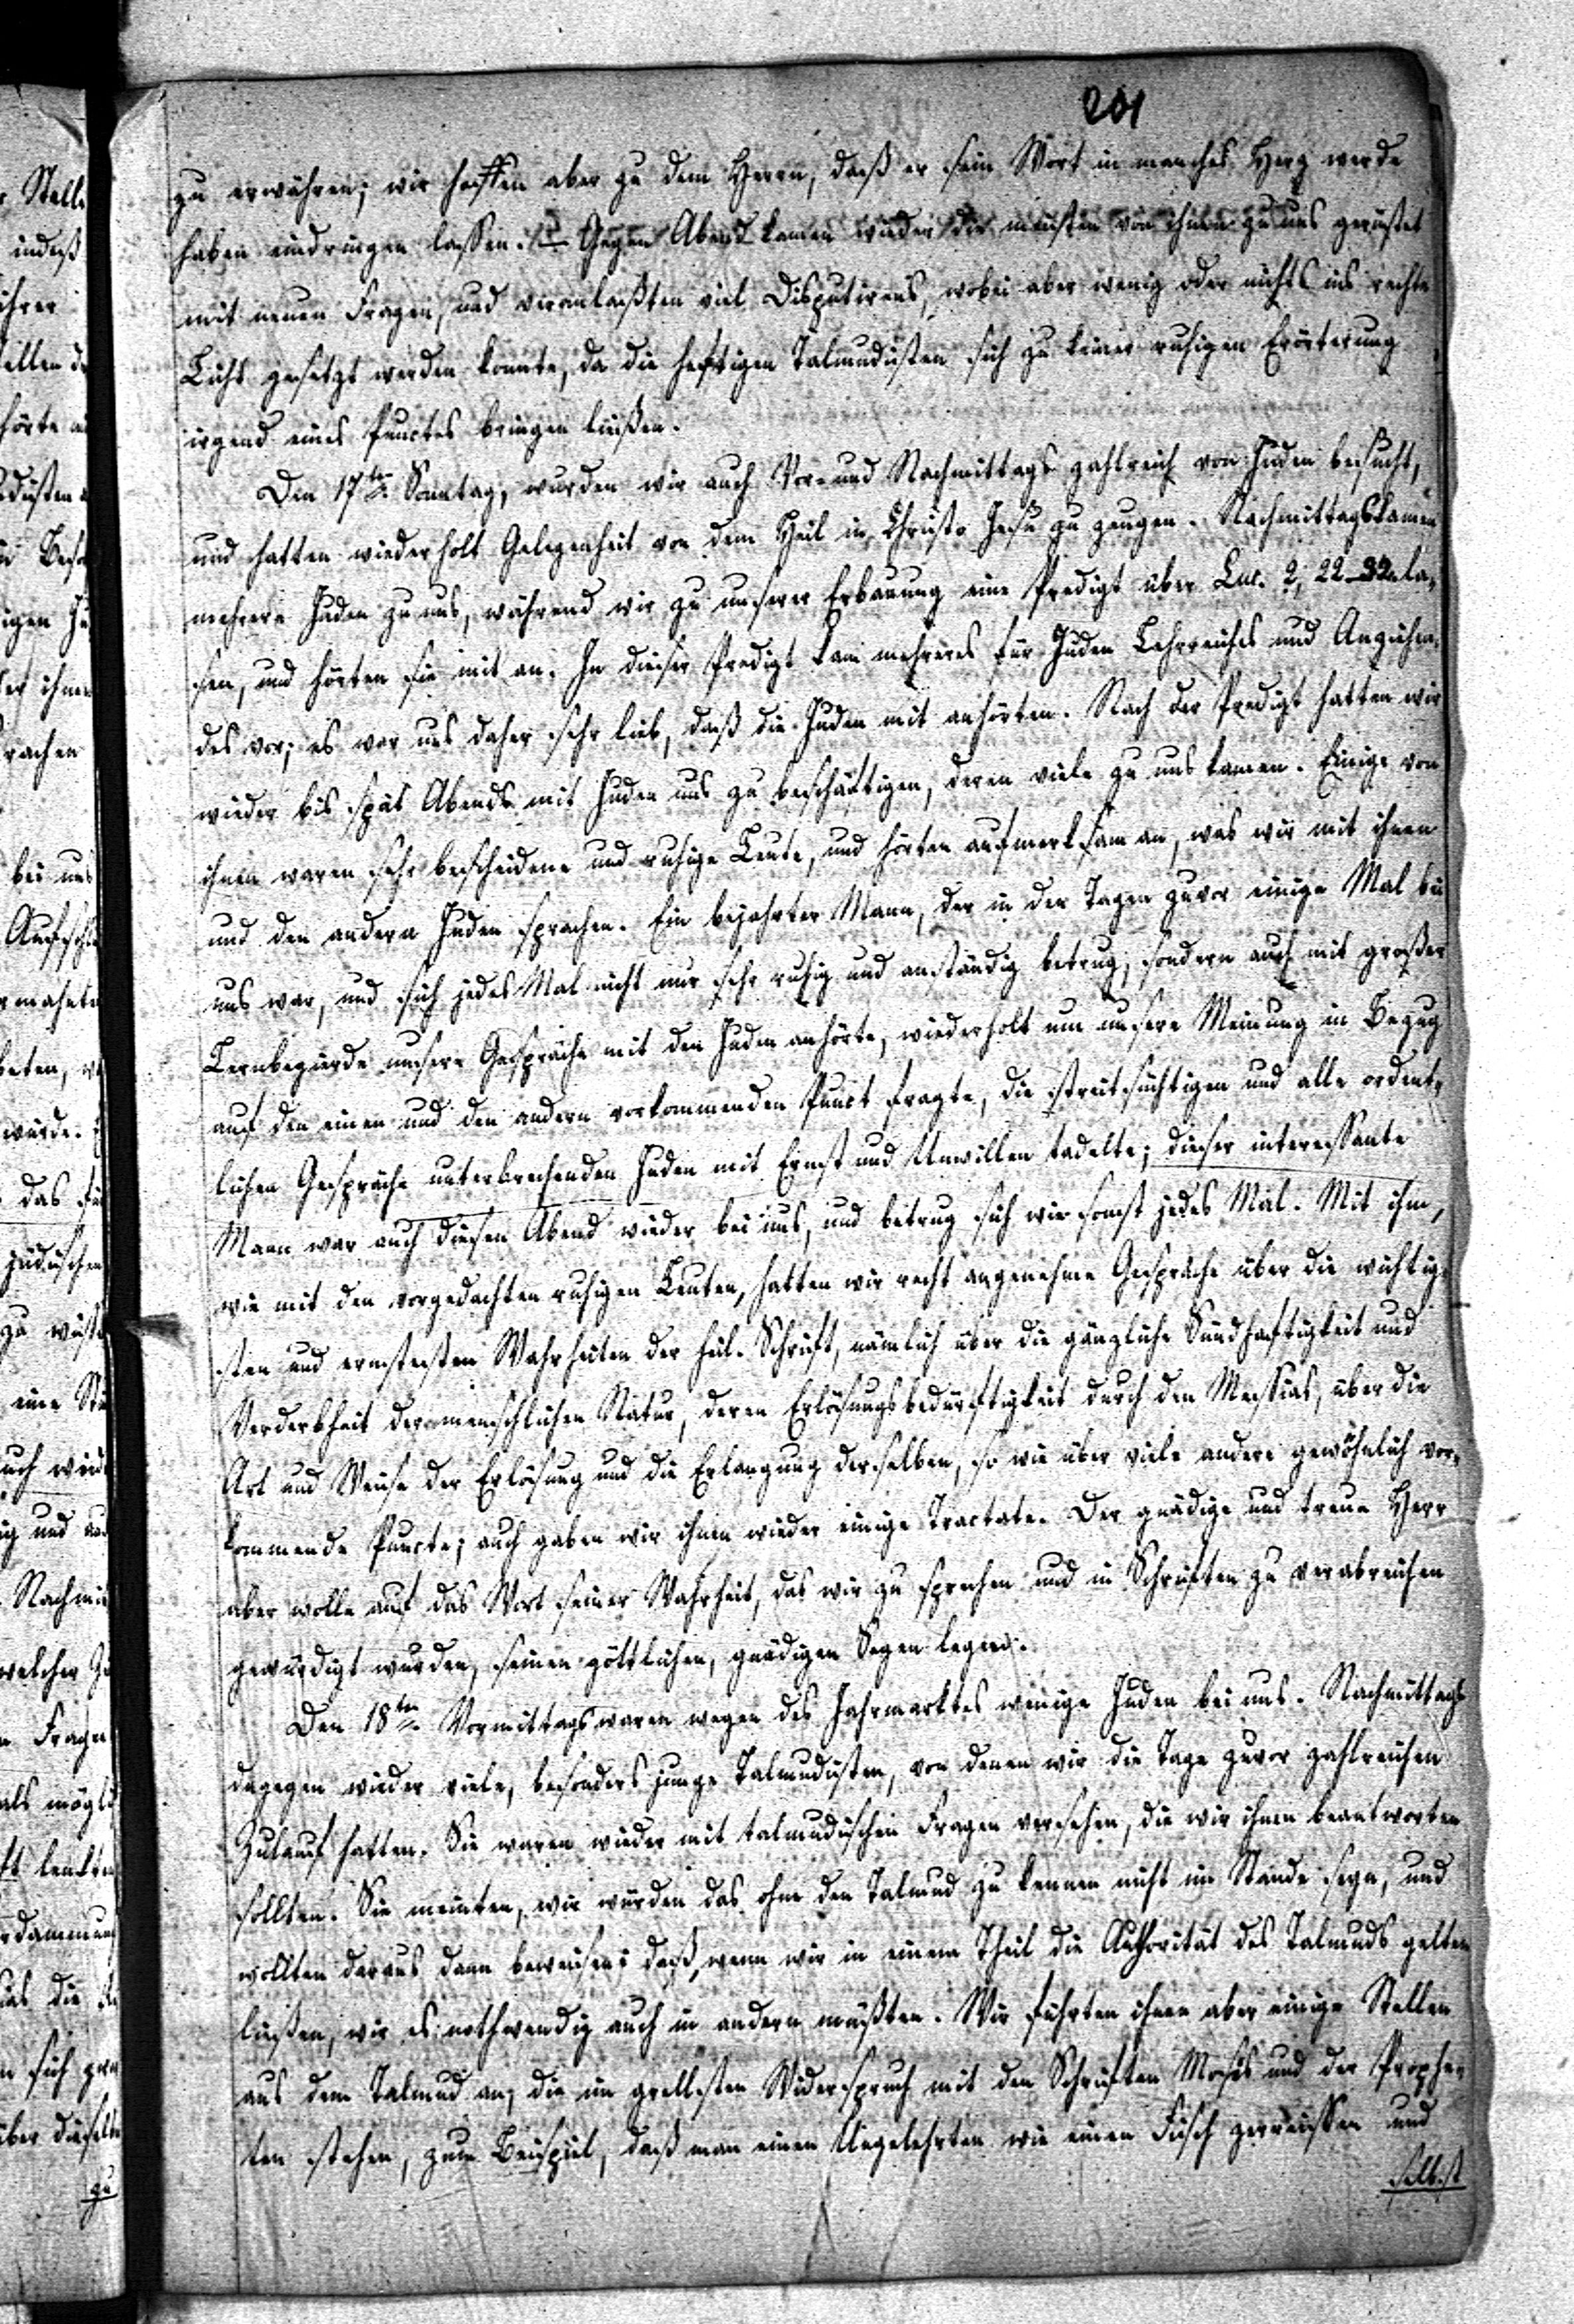 201
zu erwähnen; wir hoffen aber zu dem Herrn, daß er sein Wort in manches Herz werde
haben eindringen lassen. — Gegen Abend kamen wieder die meisten von ihnen zu uns gerüstet
mit neuen Fragen, und veranlaßten viel Disputirens, wobei aber wenig oder nichts ins rechte
Licht gesetzt werden konnte, da die heftigen Talmudisten sich zu keiner ruhigen Erörterung
irgend eines Punctes bringen ließen.
Den 17ten Sonntag, wurden wir auch Vor- und Nachmittags zahlreich von Juden besucht,
und hatten wiederholt Gelegenheit von dem Heil in Christo Jesu zu zeugen. Nachmittags kamen
mehrere Juden zu uns, während wir zu unserer Erbauung eine Predigt über Luc. 2, 22-32 la-
sen, und hörten sie mit an. In dieser Predigt kam mehreres für Juden Lehrreiches und Anziehen-
des vor; es war uns daher sehr lieb, daß die Juden mit anhörten. Nach der Predigt hatten wir
wieder bis spät Abends mit Juden uns zu beschäftigen, deren viele zu uns kamen. Einige von
ihnen waren sehr bescheidene und ruhige Leute, und hörten aufmerksam an, was wir mit ihnen
und den andern Juden sprachen. Ein bejahrter Mann, der in den Tagen zuvor einige Mal bei
uns war, und sich jedes Mal nicht nur sehr ruhig und anständig betrug, sondern auch mit großer
Lernbegierde unsere Gespräche mit den Juden anhörte, wiederholt um unsere Meinung in Bezug
auf den einen und den andern vorkommenden Punct fragte, die streitsüchtigen und alle ordent-
lichen Gespräche unterbrechenden Juden mit Ernst und Unwillen tadelte; dieser interessante
Mann war auch diesen Abend wieder bei uns, und betrug sich wie sonst jedes Mal. Mit ihm,
wie mit den vorgedachten ruhigen Leuten, hatten wir recht angenehme Gespräche über die wichtig-
sten und ernstesten Wahrheiten der heil. Schrift, nämlich über die gänzliche Sündhaftigkeit und
Verderbheit der menschlichen Natur, deren Erlösungsbedürftigkeit durch den Messias, über die
Art und Weise der Erlösung und die Erlangung derselben, so wie über viele andere gewöhnlich vor-
kommende Puncte; auch gaben wir ihnen wieder einige Tractate. Der gnädige und treue Herr
aber wolle auf das Wort seiner Wahrheit, das wir zu sprechen und in Schriften zu verabreichen
gewürdigt wurden, seinen göttlichen, gnädigen Segen legen.
Den 18ten Vormittags waren wegen des Jahrmarktes wenige Juden bei uns. Nachmittags
dagegen wieder viele, besonders junge Talmudisten, von denen wir die Tage zuvor zahlreichen
Zulauf hatten. Sie waren wieder mit talmudischen Fragen versehen, die wir ihnen beantworten
sollten. Sie meinten, wir würden das ohne den Talmud zu kennen nicht im Stande seyn, und
wollten daraus dann beweisen: daß, wenn wir in einem Theil die Authorität des Talmuds gelten
ließen, wir es nothwendig auch in andern müßten. Wir führten ihnen aber einige Stellen
aus dem Talmud an, die im grellsten Widerspruch mit den Schriften Mosis und der Prophe-
ten stehen, zum Beispiel, daß man einen Ungelehrten wie einen Fisch zerreissen und
selbst